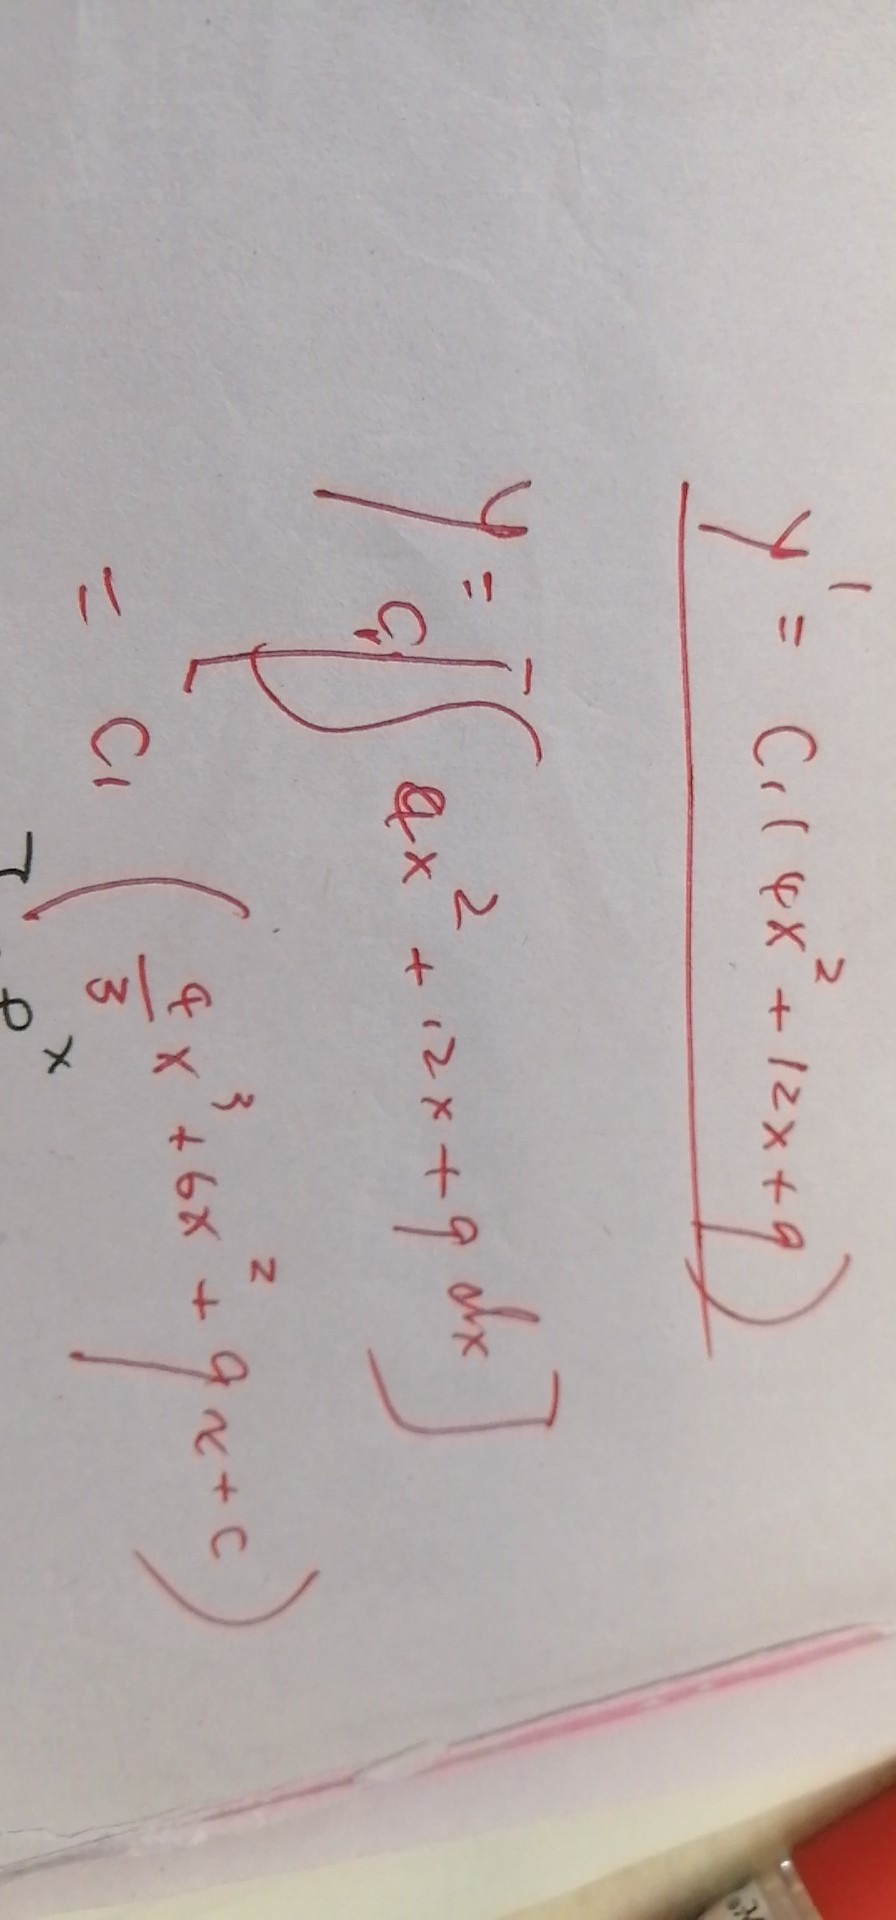 y' = C₁(4x² + 12x + 9)
y = C₁[∫ 4x² + 12x + 9 dx]
= C₁ (4/3 x³ + 6x² + 9x + c)